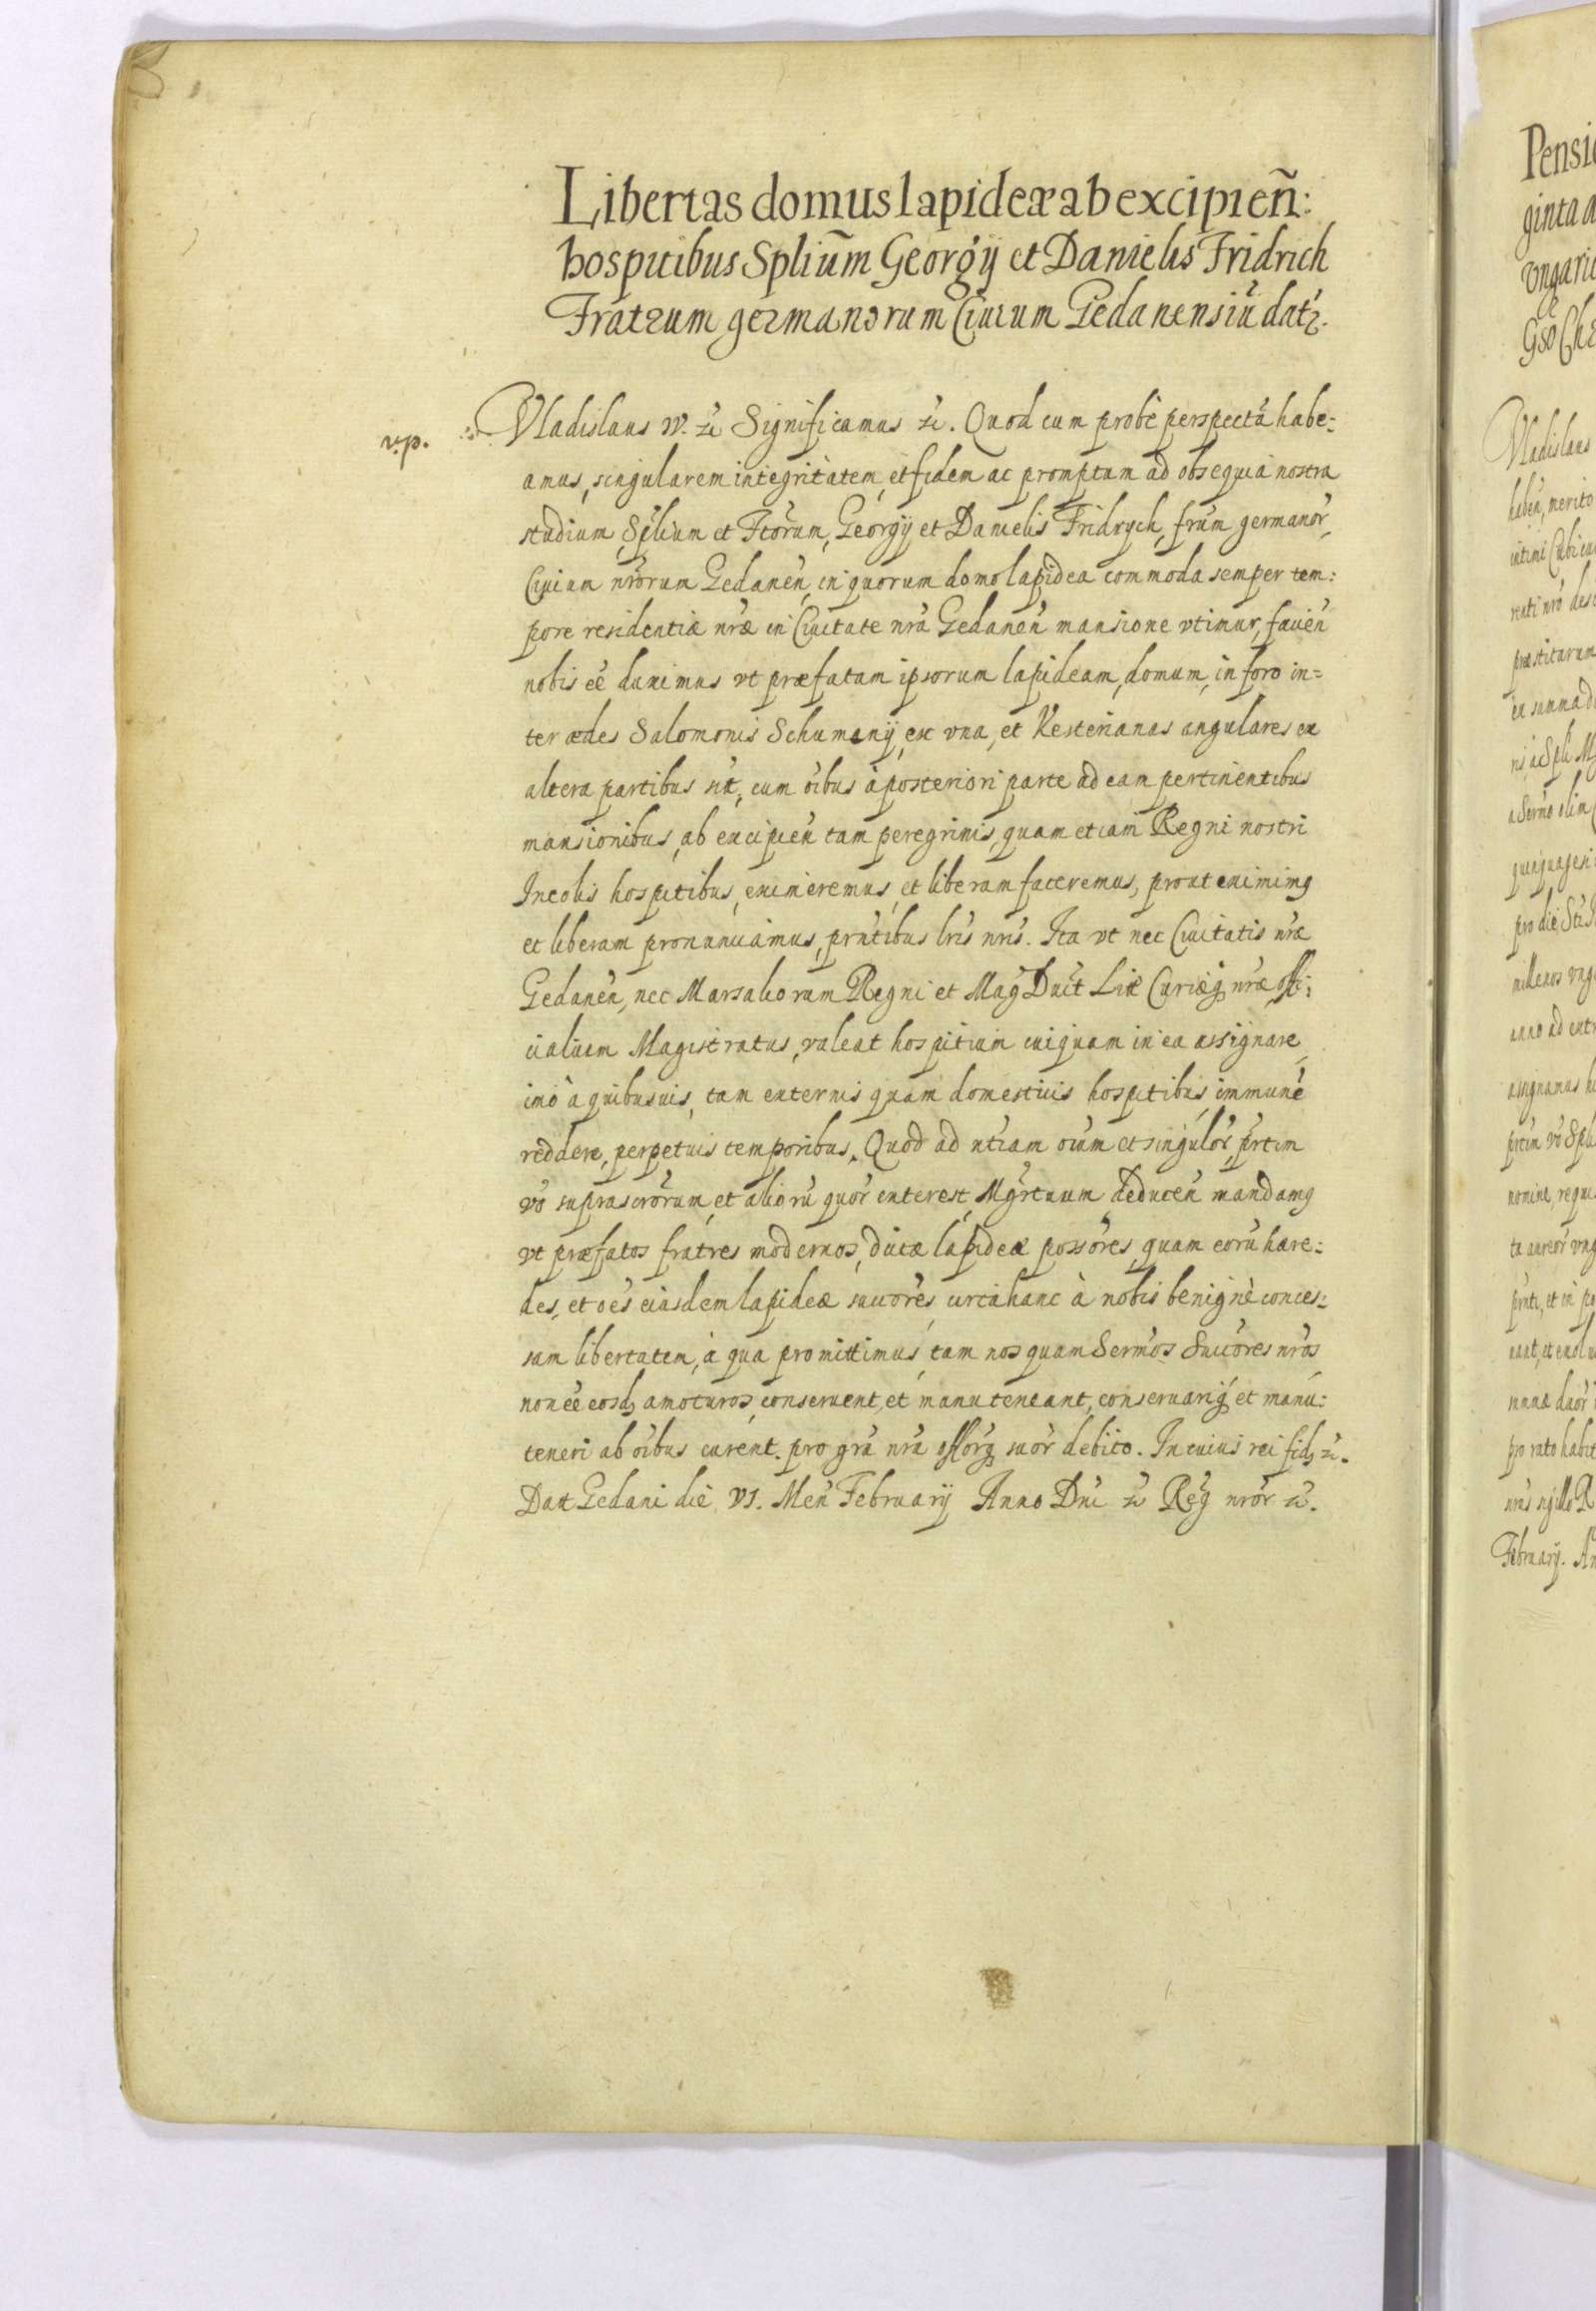 Libertas domus lapideæ ab excipieñ:
hospitibus Spliũm Georgÿ et Danielis Fridrich
Fratrum germanorum Ciuium Gedanensiũ datr.
Vladislaus IV. etc Significamus etc. Quod cum probè perspectã habe=
amus, singularem integritatem, et fidem ac promptum ad obsequia nostra
studium, Splium et Fcorum, Georgÿ et Danielis Fridrych, frum germanor,
Ciuium nrorum Gedaneñ, in quorum domo lapidea commoda semper tem:
pore residentiæ nræ in Ciuitate nra Gedaneñ mansione vtimur, fauieñ
nobis ee duximus vt præfatam ipsorum lapideam, domum, in foro in=
ter ædes Salomonis Schumanÿ ex vna, et Kesterianas angulares ex
altera partibus sit, cum oibus à posteriori parte ad eam pertinentibus
mansionibus, ab excipieñ tam peregrinis, quam etiam Regni nostri
Incolis hospitibus, eximeremus, et liberam faceremus, prout eximimq
et liberam pronunciamus, prntibus lris nris. Ita vt nec Ciuitatis nræ
Gedaneñ, nec Marsalcorum Regni et Mag Duct Lit Curiæq nræ offi:
cialium Magistratus, valeat hospitium cuiquam in ea assignare,
imò à quibusuis, tam externis quam domesticis hospitibus, immunẽ
reddere, perpetuis temporibus. Quod ad ntiam oium et singulor, prtim
vo suprascrorum, et aliorũ quor interest, Mgrtuum deduceñ mandamq
vt præfatos fratres modernos, dictæ lapideæ possores, quam eorũ hære:
des, et oes eiusdem lapideæ succores, circa hanc à nobis benignè conces=
sam libertatem, à qua promittimus, tam nos quam Sermos Succores nros
non ee eosdz amoturos, conseruent, et manuteneant, conseruariq et manu:
teneri ab oibus curent. pro gra nra offorq suor debito. In cuius rei fidz etc.
Dat Gedani diè VI. Meñ Februarÿ Anno Dni etc Reg nror etc.
Pensi
ginta a
vngaric
Vladislaus
habeñ, merito
intimi Cubicu
præstitarum
ex summa d
a Sermo olim
quinquagen
pro die Sti
millenos vng
anno ad ext
assignamus
nomine, requi
pro rato habit
Februarÿ. An